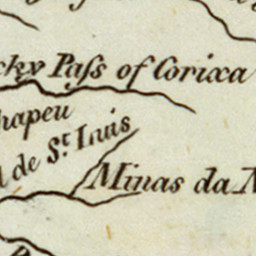 cky Paſs of Corixa
hapeu
l de S.t Luis
Minas da M